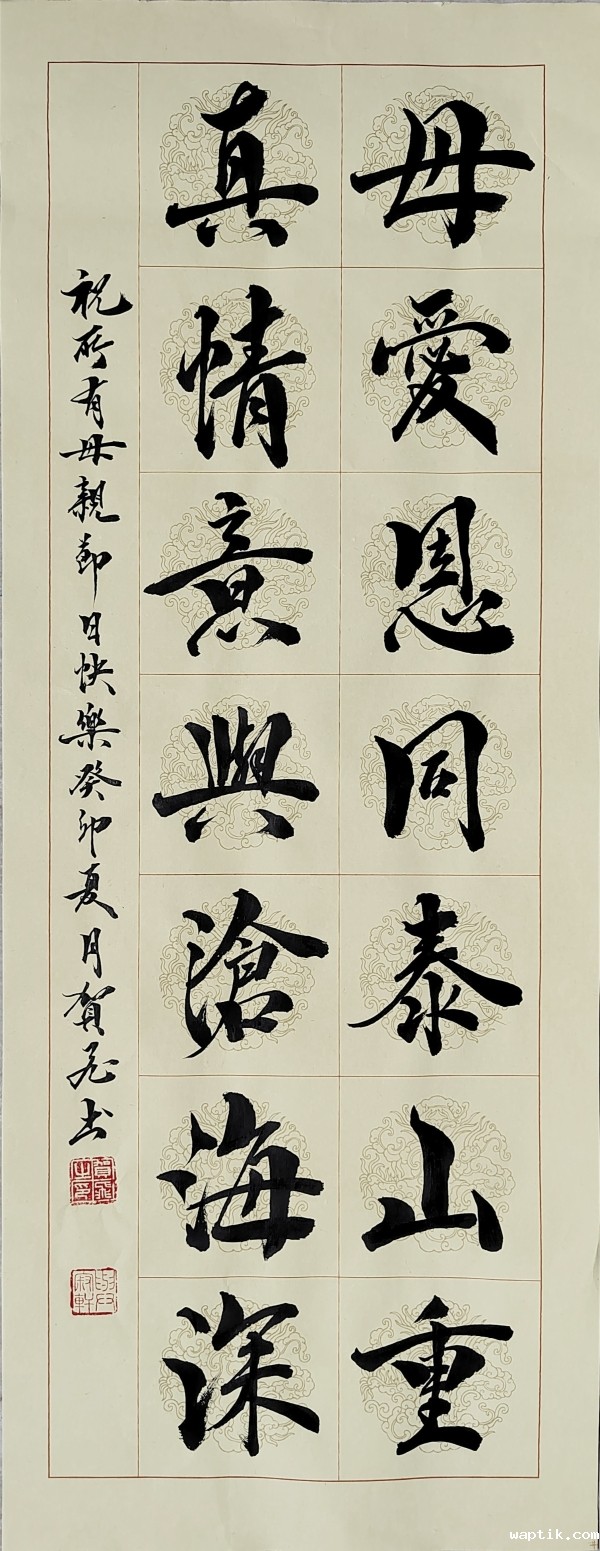 母愛恩同泰山重
真情意與滄海深
祝所有母親節日快樂癸卯夏月賀飛书
waptik.com